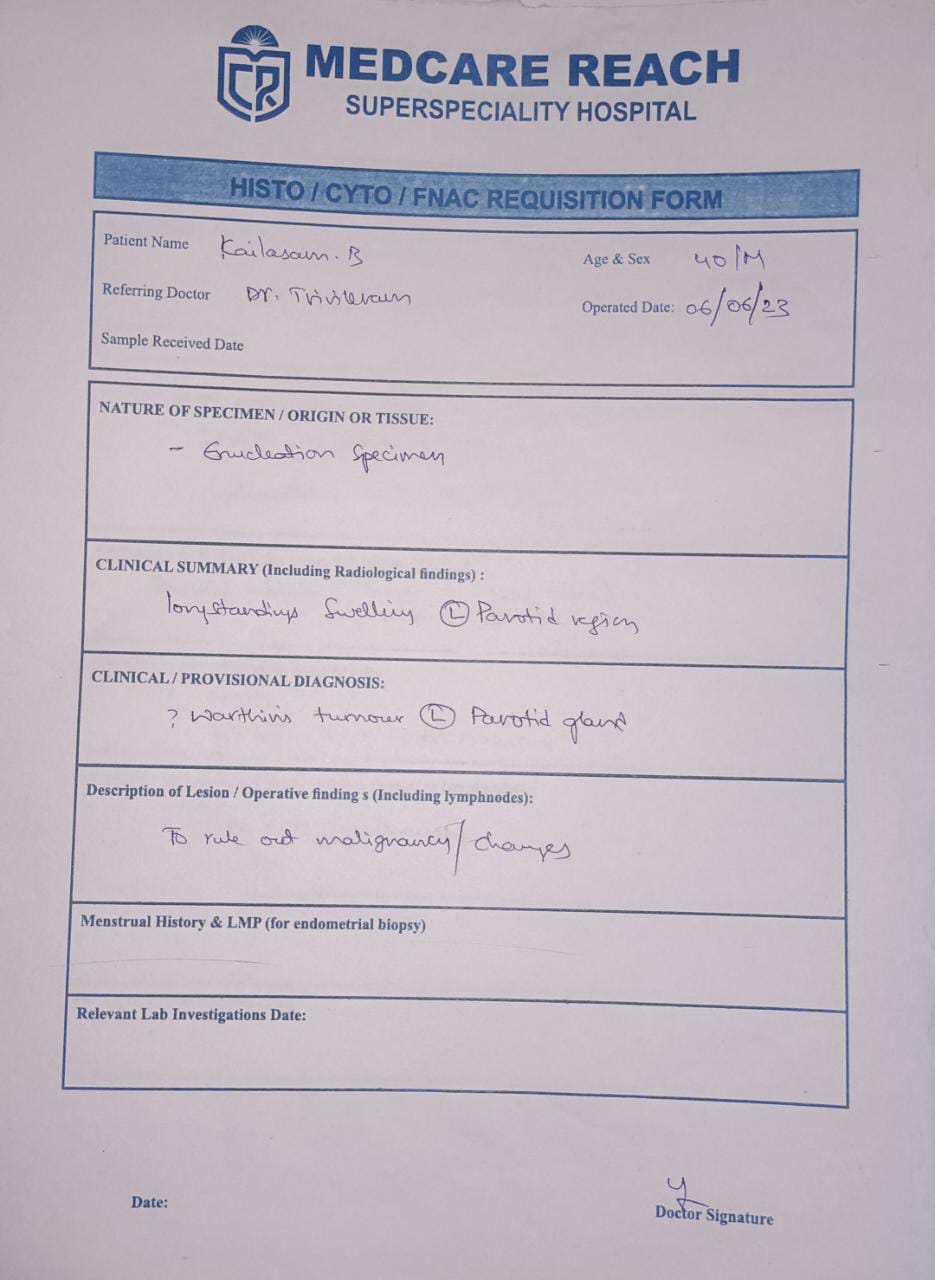 MEDCARE REACH
SUPERSPECIALITY HOSPITAL
HISTO / CYTO / FNAC REQUISITION FORM
Patient Name Kailasam. B
Age & Sex 40/M
Referring Doctor Dr.
Operated Date: 06/06/23
Sample Received Date
NATURE OF SPECIMEN / ORIGIN OR TISSUE:
- Enucleation Specimen
CLINICAL SUMMARY (Including Radiological findings) :
longstanding Swelling (L) Parotid region
CLINICAL / PROVISIONAL DIAGNOSIS:
? Warthin's tumour (L) Parotid gland
Description of Lesion / Operative finding s (Including lymphnodes):
To rule out malignancy / changes
Menstrual History & LMP (for endometrial biopsy)
Relevant Lab Investigations Date:
Date:
Doctor Signature